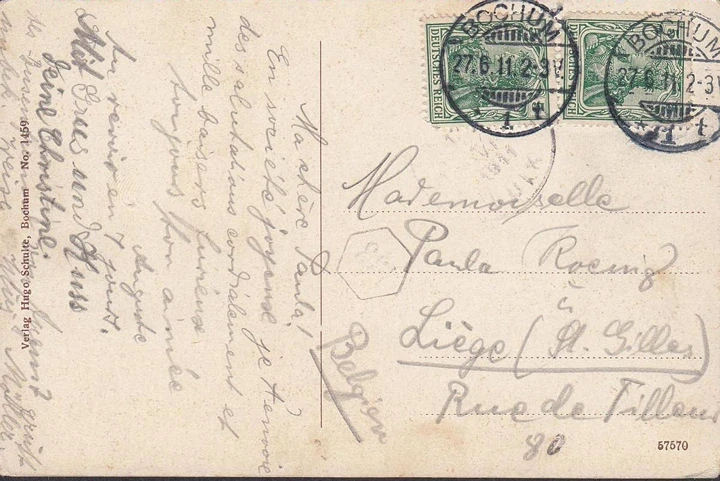 Ma chère Paula!
En societé joyeuse je t'envoie
des salutations cordialement et
mille baisers furieux
toujours ton aimée
Auguste
Au revoir en 7 jours.
Mit Gruss und Kuss
Deine Christine.
Verlag Hugo Schulte, Bochum No. 1459
DEUTSCHES REICH
BOCHUM
27.6.11.2-3V.
* 1 t
BOCHUM
27.6.11.2-3V
* 1 t
Mademoiselle
Paula Roenig
Liège (St. Gilles)
Rue de Tilleur
80
Belgien
57570